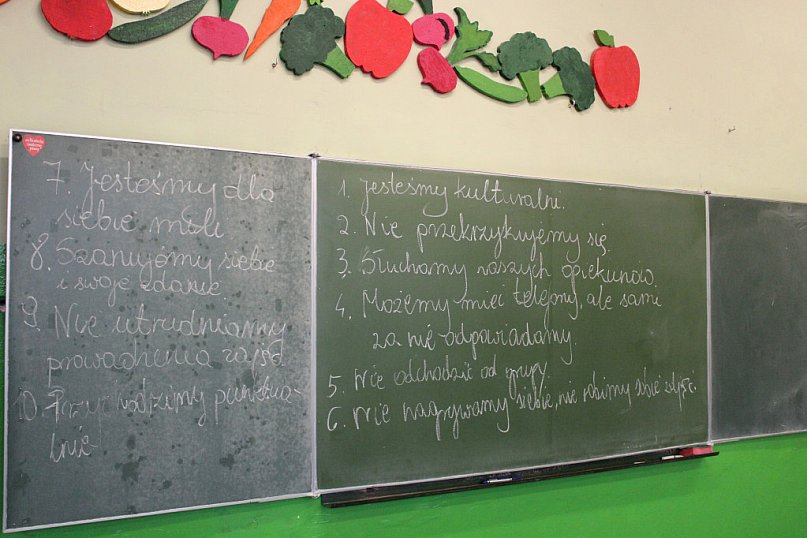 7. Jesteśmy dla
siebie mili
8. Szanujemy siebie
i swoje zdanie
9. Nie utrudniamy
prowadzenia zajęć
10. Przychodzimy punktua-
lnie
1. Jesteśmy kulturalni.
2. Nie przekrzykujemy się
3. Słuchamy naszych opiekunów.
4. Możemy mieć telefony, ale sami
za nie odpowiadamy.
5. Nie odchodzić od grupy.
6. Nie nagrywamy siebie, nie robimy sobie zdjęć.